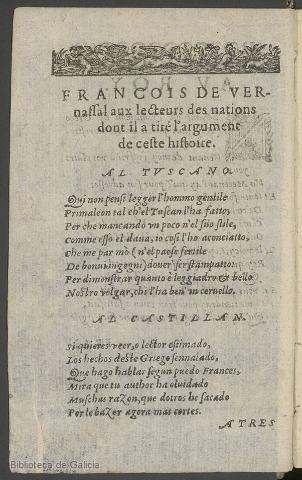 FRANCOIS DE VER-
nassal aux lecteurs des nations
dont il a tiré l'argument
de ceste histoire.
AL TVSCANO.
Qui non pensi legger l'hommo gentile
Primaleon tal ch'el Tuscan l'ha fatto,
Per che mancando vn poco n'el suo stile,
Comme esso el daua, io cosi l'ho aconciatto,
Che me par mò (n'el paese fertile
De bonni ingegni) douer ser stampatto:
Per dimonstrar quanto è leggiadro et bello
Nostro volgar, chi l'ha ben' vn ceruello.
AL CASTILLAN.
Si quieres veer, o lector estimado,
Los hechos deste Griego sennalado,
Que hago hablar segun puedo Frances,
Mira que tu author ha oluidado
Muschas razon, que dotros he sacado
Por le hazer agora mas cortes.
A TRES
Biblioteca de Galicia